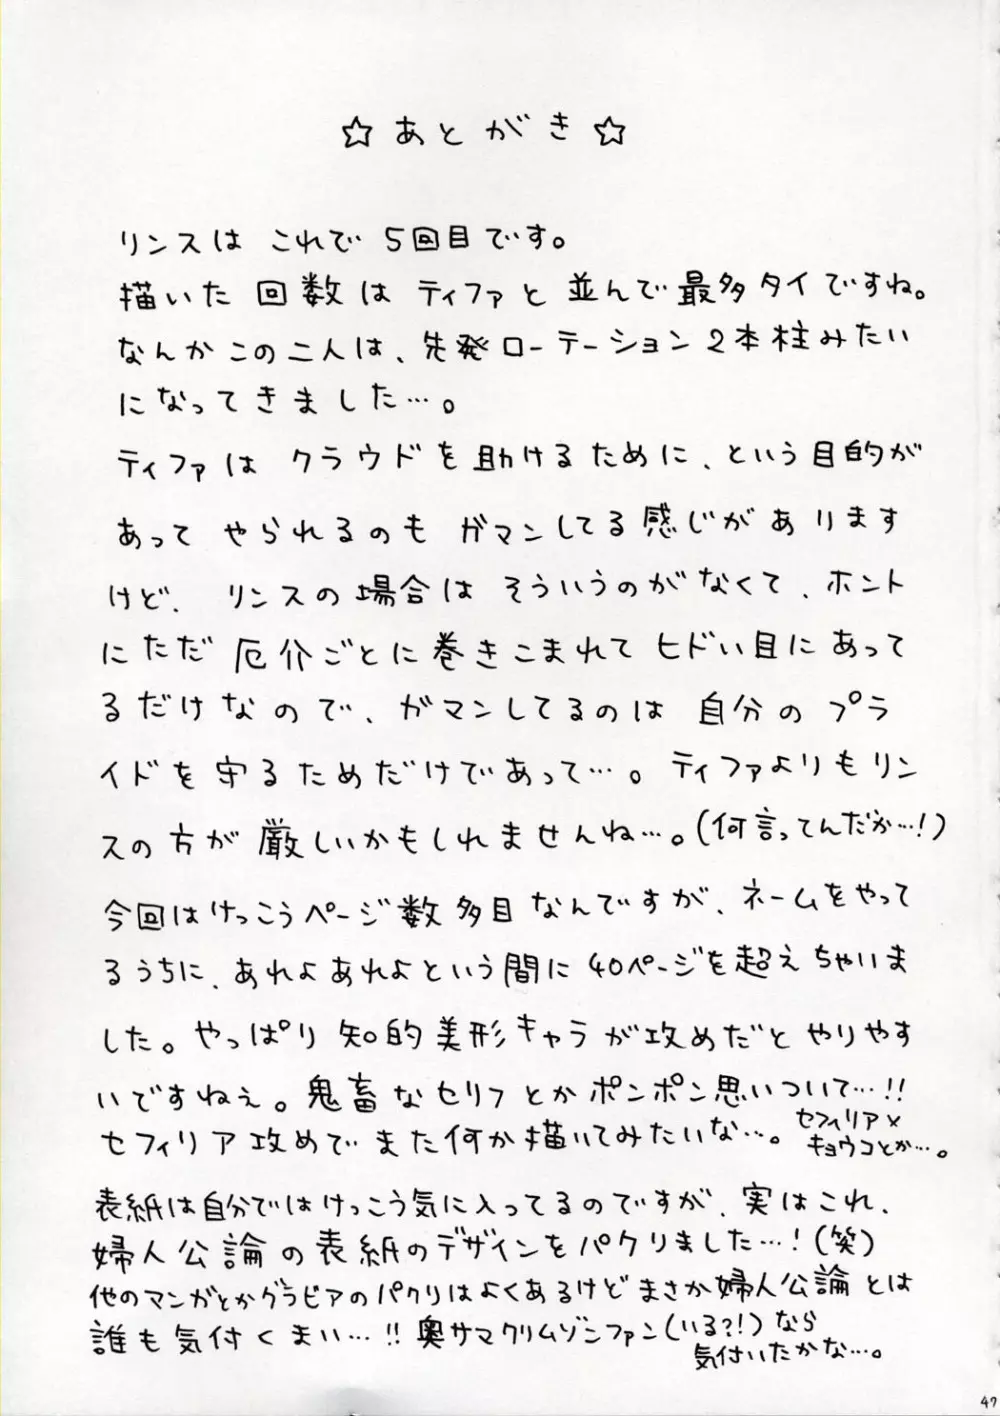 ☆あとがき☆
リンスは これで 5回目です。
描いた 回数は ティファと 並んで 最多タイですね。
なんかこの二人は、先発ローテーション2本柱みたい
になってきました…。
ティファは クラウドを助けるために、という目的が
あって やられるのも ガマンしてる 感じがあります
けど、 リンスの場合は そういうのがなくて、ホント
にただ 厄介ごとに巻きこまれて ヒドい目にあって
るだけなので、ガマンしてるのは 自分の プラ
イドを守るためだけであって…。ティファよりもリン
スの方が 厳しいかもしれませんね…。(何言ってんだか…!)
今回はけっこうページ数多目なんですが、ネームをやって
るうちに、あれよあれよという間に 40ページを超えちゃいま
した。やっぱり 知的美形キャラが攻めだと やりやす
いですねぇ。鬼畜なセリフとかポンポン思いついて…!!
セフィリア攻めでまた何か描いてみたいな…。セフィリア×
キョウコとか…。
表紙は自分ではけっこう気に入ってるのですが、実はこれ、
婦人公論の表紙のデザインをパクりました…!(笑)
他のマンガとかグラビアのパクリはよくあるけどまさか婦人公論とは
誰も気付くまい…!!奥サマクリムゾンファン(いる?!)なら
気付いたかな…。
47